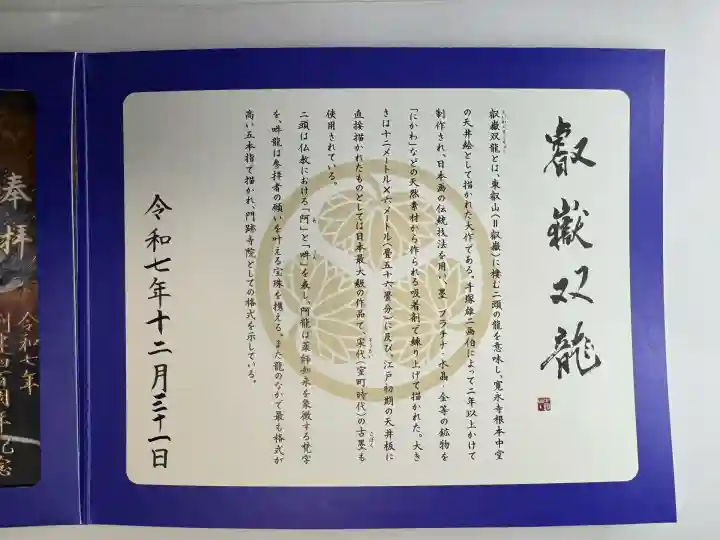 叡嶽双龍
叡嶽双龍とは、東叡山(=叡嶽)に棲む二頭の龍を意味し、寛永寺根本中堂
の天井絵として描かれた大作である。手塚雄二画伯によって二年以上かけて
制作され、日本画の伝統技法を用い、墨・プラチナ・水晶・金等の鉱物を
「にかわ」などの天然素材から作られる吸着剤で練り上げて描かれた。大き
さは十二メートル×六メートル(畳五十六畳分)に及び、江戸初期の天井板に
直接描かれたものとしては日本最大級の作品で、宋代(室町時代)の古墨も
使用されている。
二頭は仏教における「阿」と「吽」を表し、阿龍は薬師如来を象徴する梵字
を、吽龍は参拝者の願いを叶える宝珠を携える。また龍のなかで最も格式が
高い五本指で描かれ、門跡寺院としての格式を示している。
令和七年十二月三十一日
奉拝
令和七年
創建四百周年記念